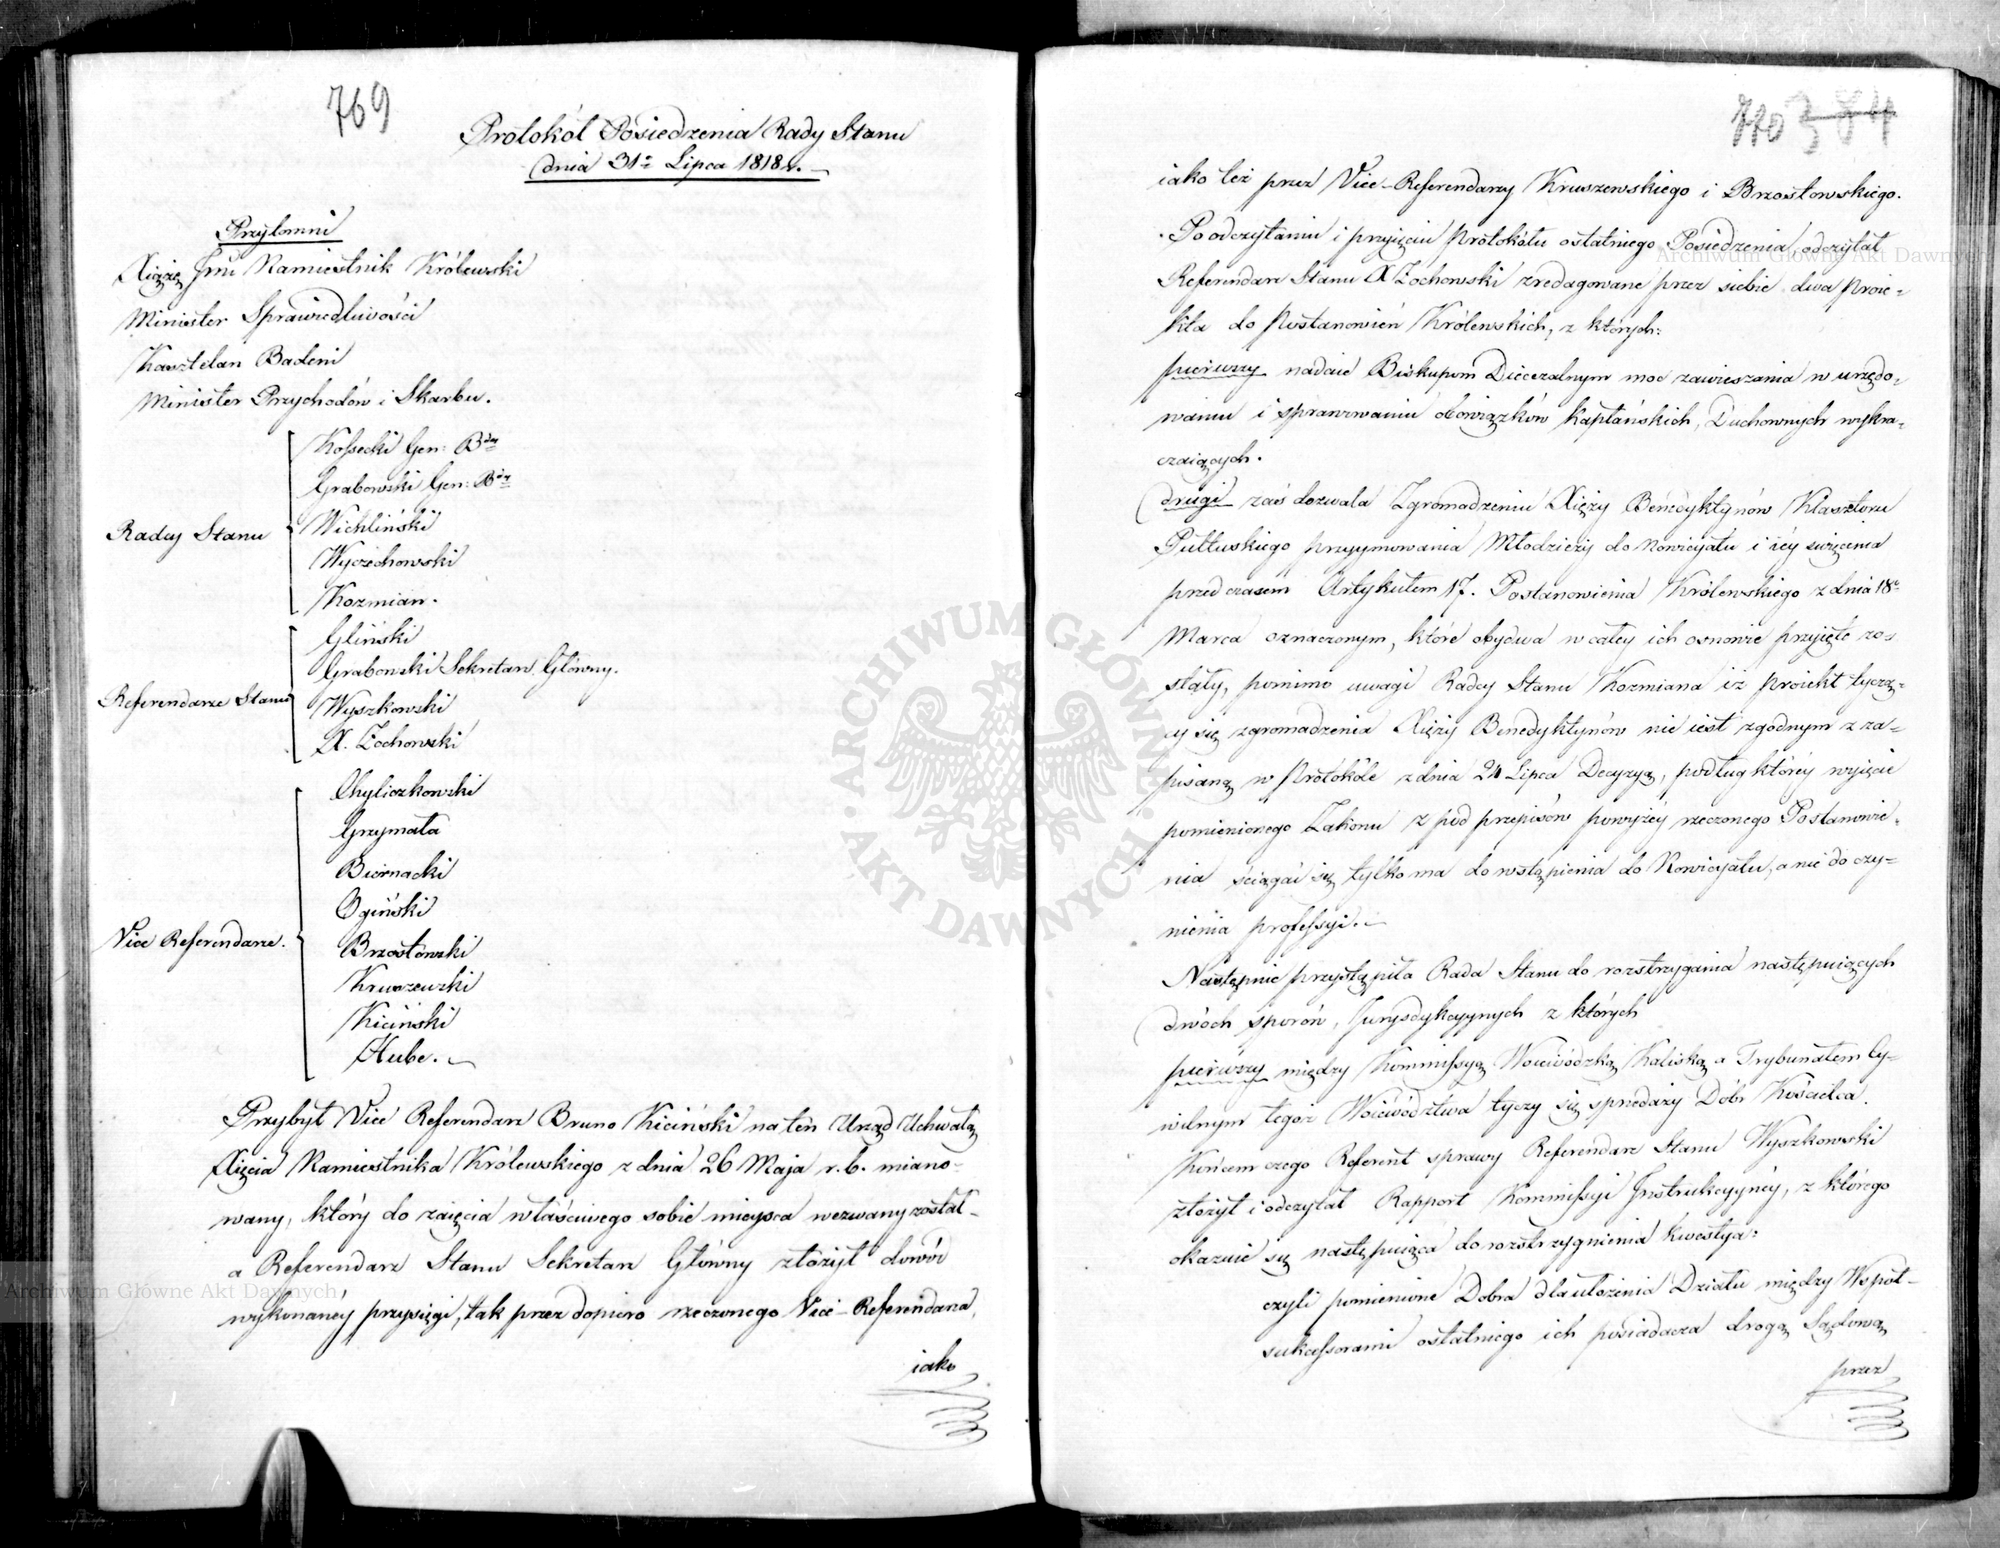 769
Protokół Posiedzenia Rady Stanu
dnia 31º Lipca 1818 r.
Przytomni
Xiążę Jmć Namiestnik Królewski
Minister Sprawiedliwości
Kasztelan Badeni
Minister Przychodów i Skarbu.
Radcy Stanu
Kossecki Gen: Bdy
Grabowski Gen: Bdy
Wichliński
Wyczechowski
Kozmian.
Referendarze Stanu
Gliński
Grabowski Sekretarz Główny.
Wyszkowski
X. Żochowski
Vice Referendarze.
Chyliczkowski
Grzymała
Biernacki
Ogiński
Brzostowski
Kruszewski
Kiciński
Hube.
Przybył Vice Referendarz Bruno Kiciński na ten Urząd Uchwałą
Xięcia Namiestnika Królewskiego z dnia 26 Maja r. b. miano-
wany, który do zaięcia właściwego sobie mieysca wezwany został
a Referendarz Stanu Sekretarz Główny złożył dowód
wykonanéy przysięgi, tak przez dopiero rzeczonego Vice-Referendarza,
iako
770 384
iako też przez Vice-Referendarzy Kruszewskiego i Brzostowskiego.
Po odczytaniu i przyięciu protokółu ostatniego Posiedzenia, odczytał
Referendarz Stanu X Żochowski zredagowane przez siebie dwa proie-
kta do Postanowień Królewskich, z których:
pierwszy nadaie Biskupom Diecezalnym moc zawieszania w urzędo-
waniu i sprawowaniu obowiązków kapłańskich, Duchownych wykra-
czaiących.
drugi zaś dozwala Zgromadzeniu Xięży Benedyktynów Klasztoru
Pułtuskiego przyymowania Młodzieży do Nowicyatu i iéy święcenia
przed czasem Artykułem 17. Postanowienia Królewskiego z dnia 18º
Marca oznaczonym, które obydwa w całéy ich osnowie przyięte zo-
stały, pomimo uwagi Radcy Stanu Kozmiana iż proiekt tyczą-
cy się zgromadzenia Xięży Benedyktynów nie iest zgodnym z za-
pisaną w Protokóle z dnia 24 Lipca Decyzyą, podług któréy wyięcie
pomienionego Zakonu z pod przepisów powyżéy rzeczonego Postanowie-
nia ściągać się tylko ma do wstąpienia do Nowicyatu, a nie do czy-
nienia professyi.
Następnie przystąpiła Rada Stanu do rozstrzygania następuiących
dwóch sporów, Jurysdykcyynych z których
pierwszy między Kommissyą Woiewódzką Kaliską a Trybunałem Cy-
wilnym tegoż Województwa tyczy się sprzedaży Dóbr Kościelca.
Końcem czego Referent sprawy Referendarz Stanu Wyszkowski
złożył i odczytał Rapport Kommissyi Instrukcyynéy, z którego
okazuie się następuiąca do rozstrzygnienia kwestya:
czyli pomienione Dobra dla ułożenia Działu między Współ-
sukcessorami ostatniego ich posiadacza drogą Sądową
przez